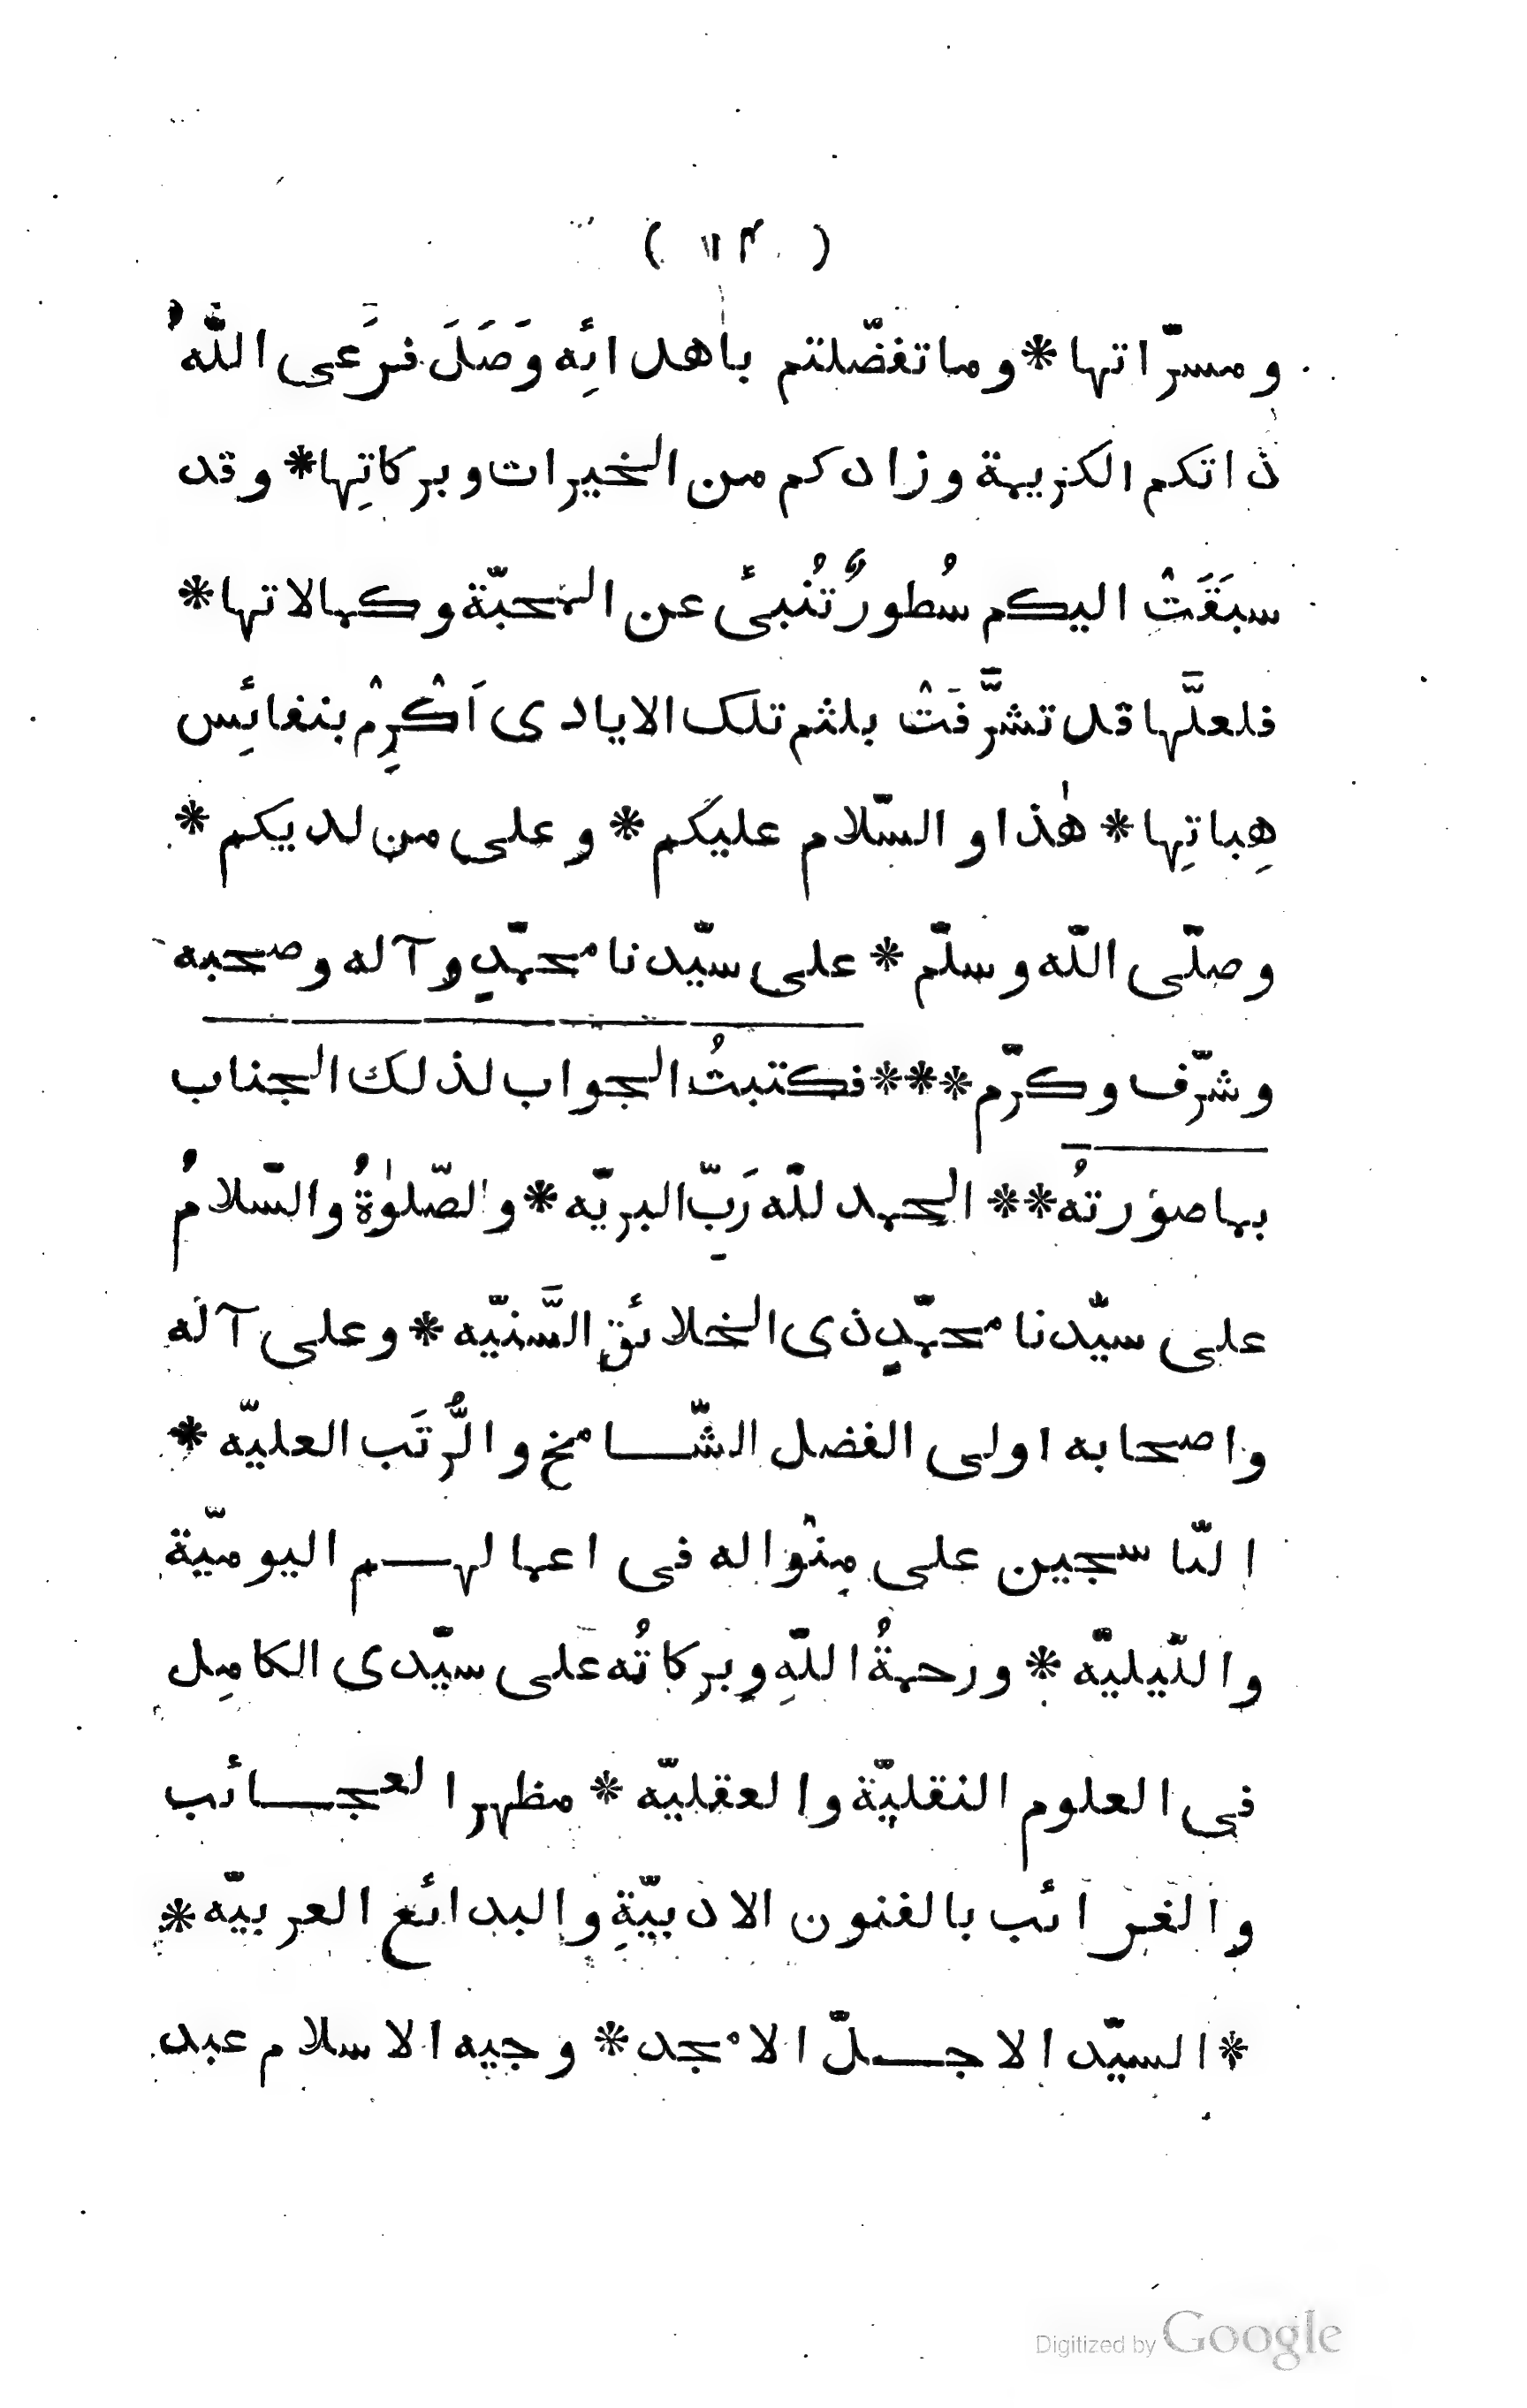 ومسرّاتها * وما تفضّلتم باهدائِه وَصَلَ فرَعى اللّٰهُ
ذاتكم الكريمة وزادكم من الخيرات وبركاتِها * وقد
سبَقَتْ اليكم سُطورٌ تُنبئُ عن المحبّة وكمالاتها *
فلعلَّها قد تشرَّفَتْ بلثم تلك الايادى اَكْرِمْ بنفائِس
هِباتِها * هٰذا والسّلام عليكم * وعلى من لديكم *
وصلّى اللّه وسلّم * على سيّدنا محمّدٍ وآله وصحبه
وشرّف وكرّم *** فكتبتُ الجواب لذلك الجناب
بما صورتُه ** الحمد للّه رَبِّ البريّه * والصّلوٰةُ والسّلامُ
على سيّدنا محمّدٍ ذى الخلائق السَّنيّه * وعلى آله
واصحابه اولى الفضل الشّامخ والرُّتَب العليّه *
النّاسجين على مِنْواله فى اعمالهم اليوميّة
واللّيليّه * ورحمةُ اللّهِ وبركاتُه على سيّدى الكامِل
فى العلوم النقليّة والعقليّه * مظهر العجائب
والغرائب بالفنون الادبيّةِ والبدائع العربيّه *
* السيّد الاجلّ الامجد * وجيه الاسلام عبد
Digitized by Google